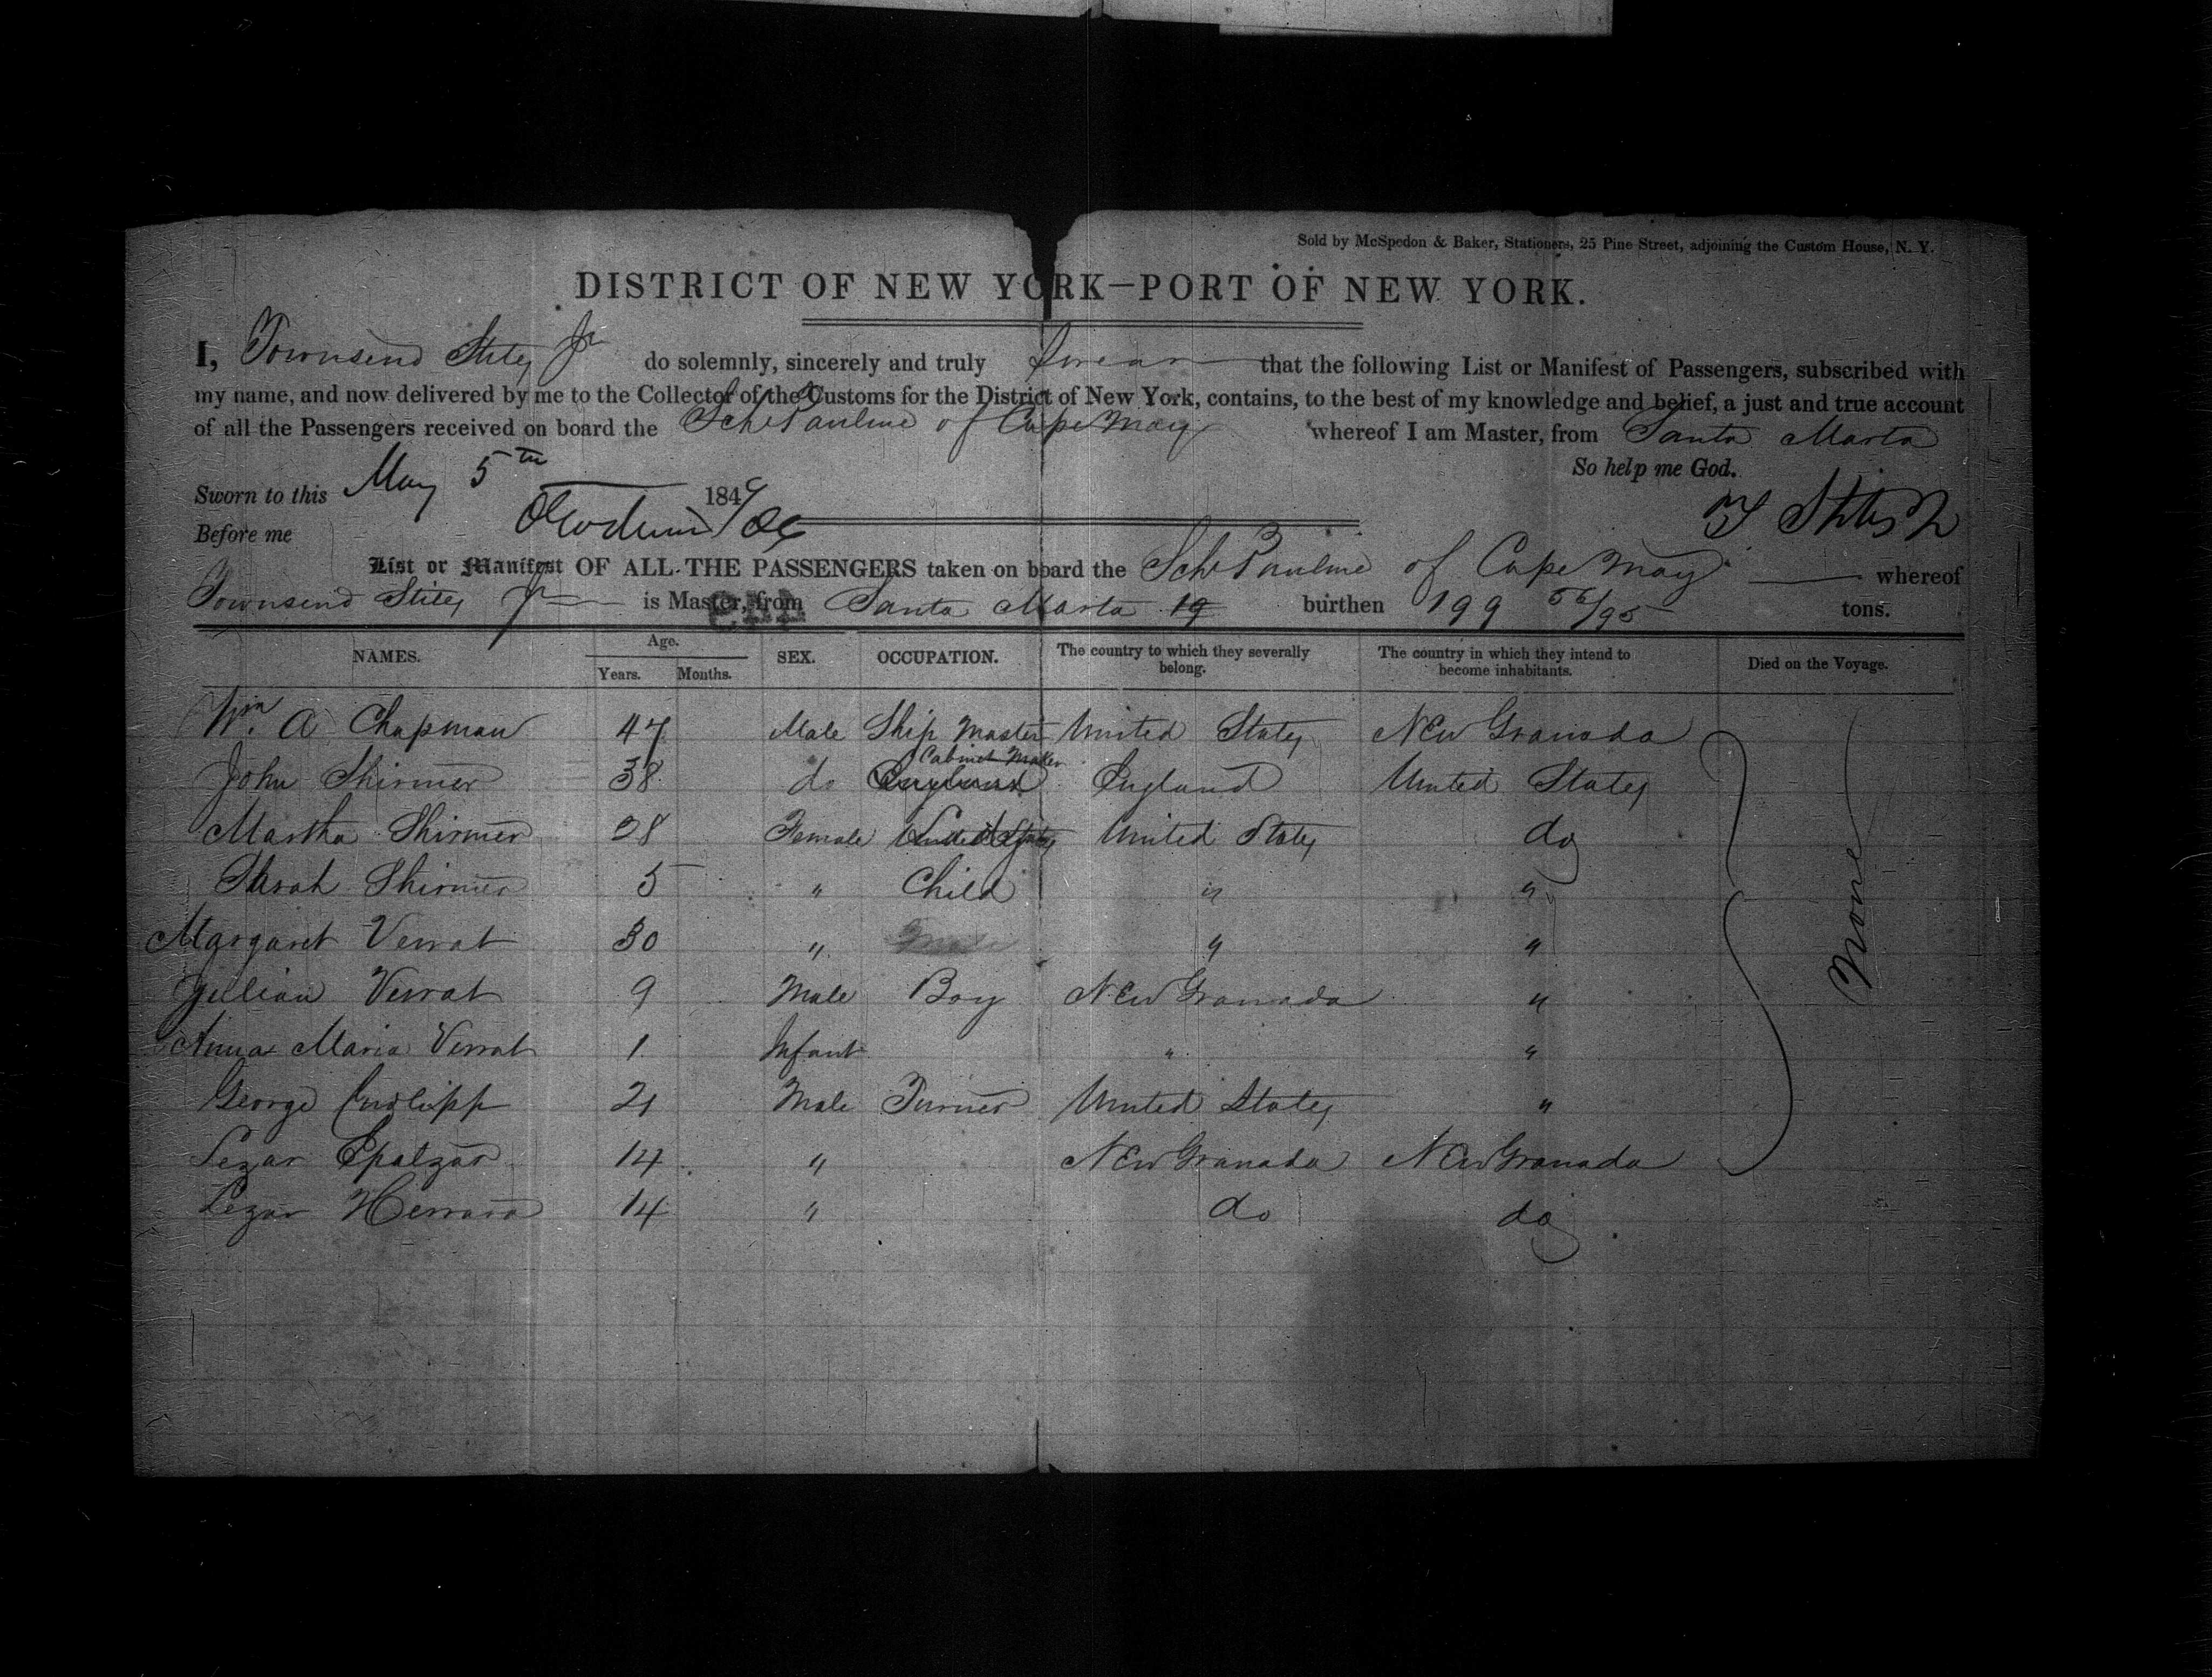 Sold by McSpedon & Baker, Stationers, 25 Pine Street, adjoining the Custom House, N. Y.
DISTRICT OF NEW YORK—PORT OF NEW YORK.
I, Townsend Stites Jr do solemnly, sincerely and truly swear that the following List or Manifest of Passengers, subscribed with
my name, and now delivered by me to the Collector of the Customs for the District of New York, contains, to the best of my knowledge and belief, a just and true account
of all the Passengers received on board the Schr Pauline of Cape May whereof I am Master, from Santa Marta
So help me God.
Sworn to this May 5th 184
T Stites Jr
Before me
List or Manifest OF ALL THE PASSENGERS taken on board the Schr Pauline of Cape May whereof
Townsend Stites Jr is Master, from Santa Marta 19 burthen 199 56/95 tons.
NAMES. Age. Years. Months. SEX. OCCUPATION. The country to which they severally belong. The country in which they intend to become inhabitants. Died on the Voyage.
Wm. A Chapman 47 Male Ship Master United States New Granada
John Shirmer 38 do Cabinet Maker England England United States
Martha Shirmer 28 Female United States United States do
Sarah Shirmer 5 " Child " "
Margaret Verrat 30 " " "
Julian Verrat 9 Male Boy New Granada "
Anna Maria Verrat 1 Infant " "
George Cudlipp 21 Male Turner United States "
Epalzar 14 " New Granada New Granada
Herrara 14 " do do
None